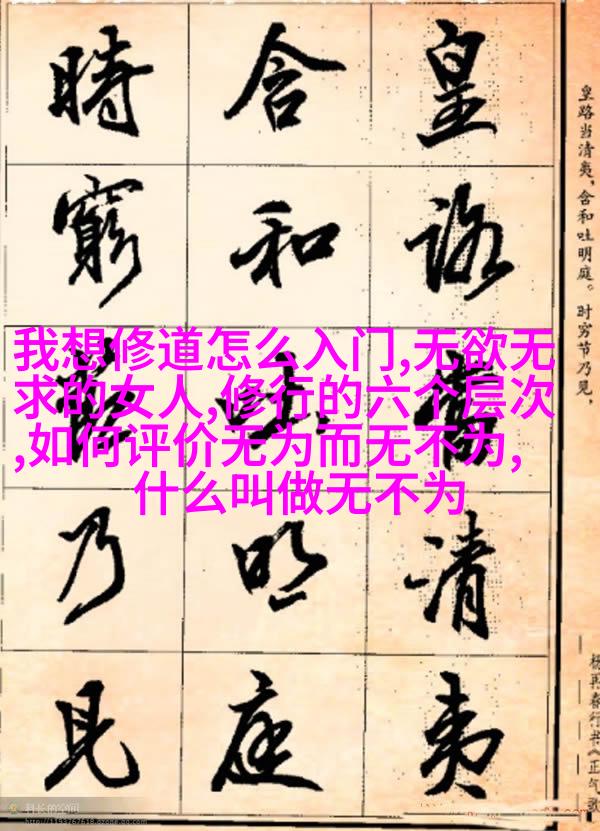 皇路當清夷
含和吐明庭
時窮節乃見
皇路当清夷,含和吐明庭。时穷节乃见,
杨再春行书《正气歌
我想修道怎么入门,无欲无
求的女人,修行的六个层次
,如何评价无为而无不为,
什么叫做无不为
科长的空间